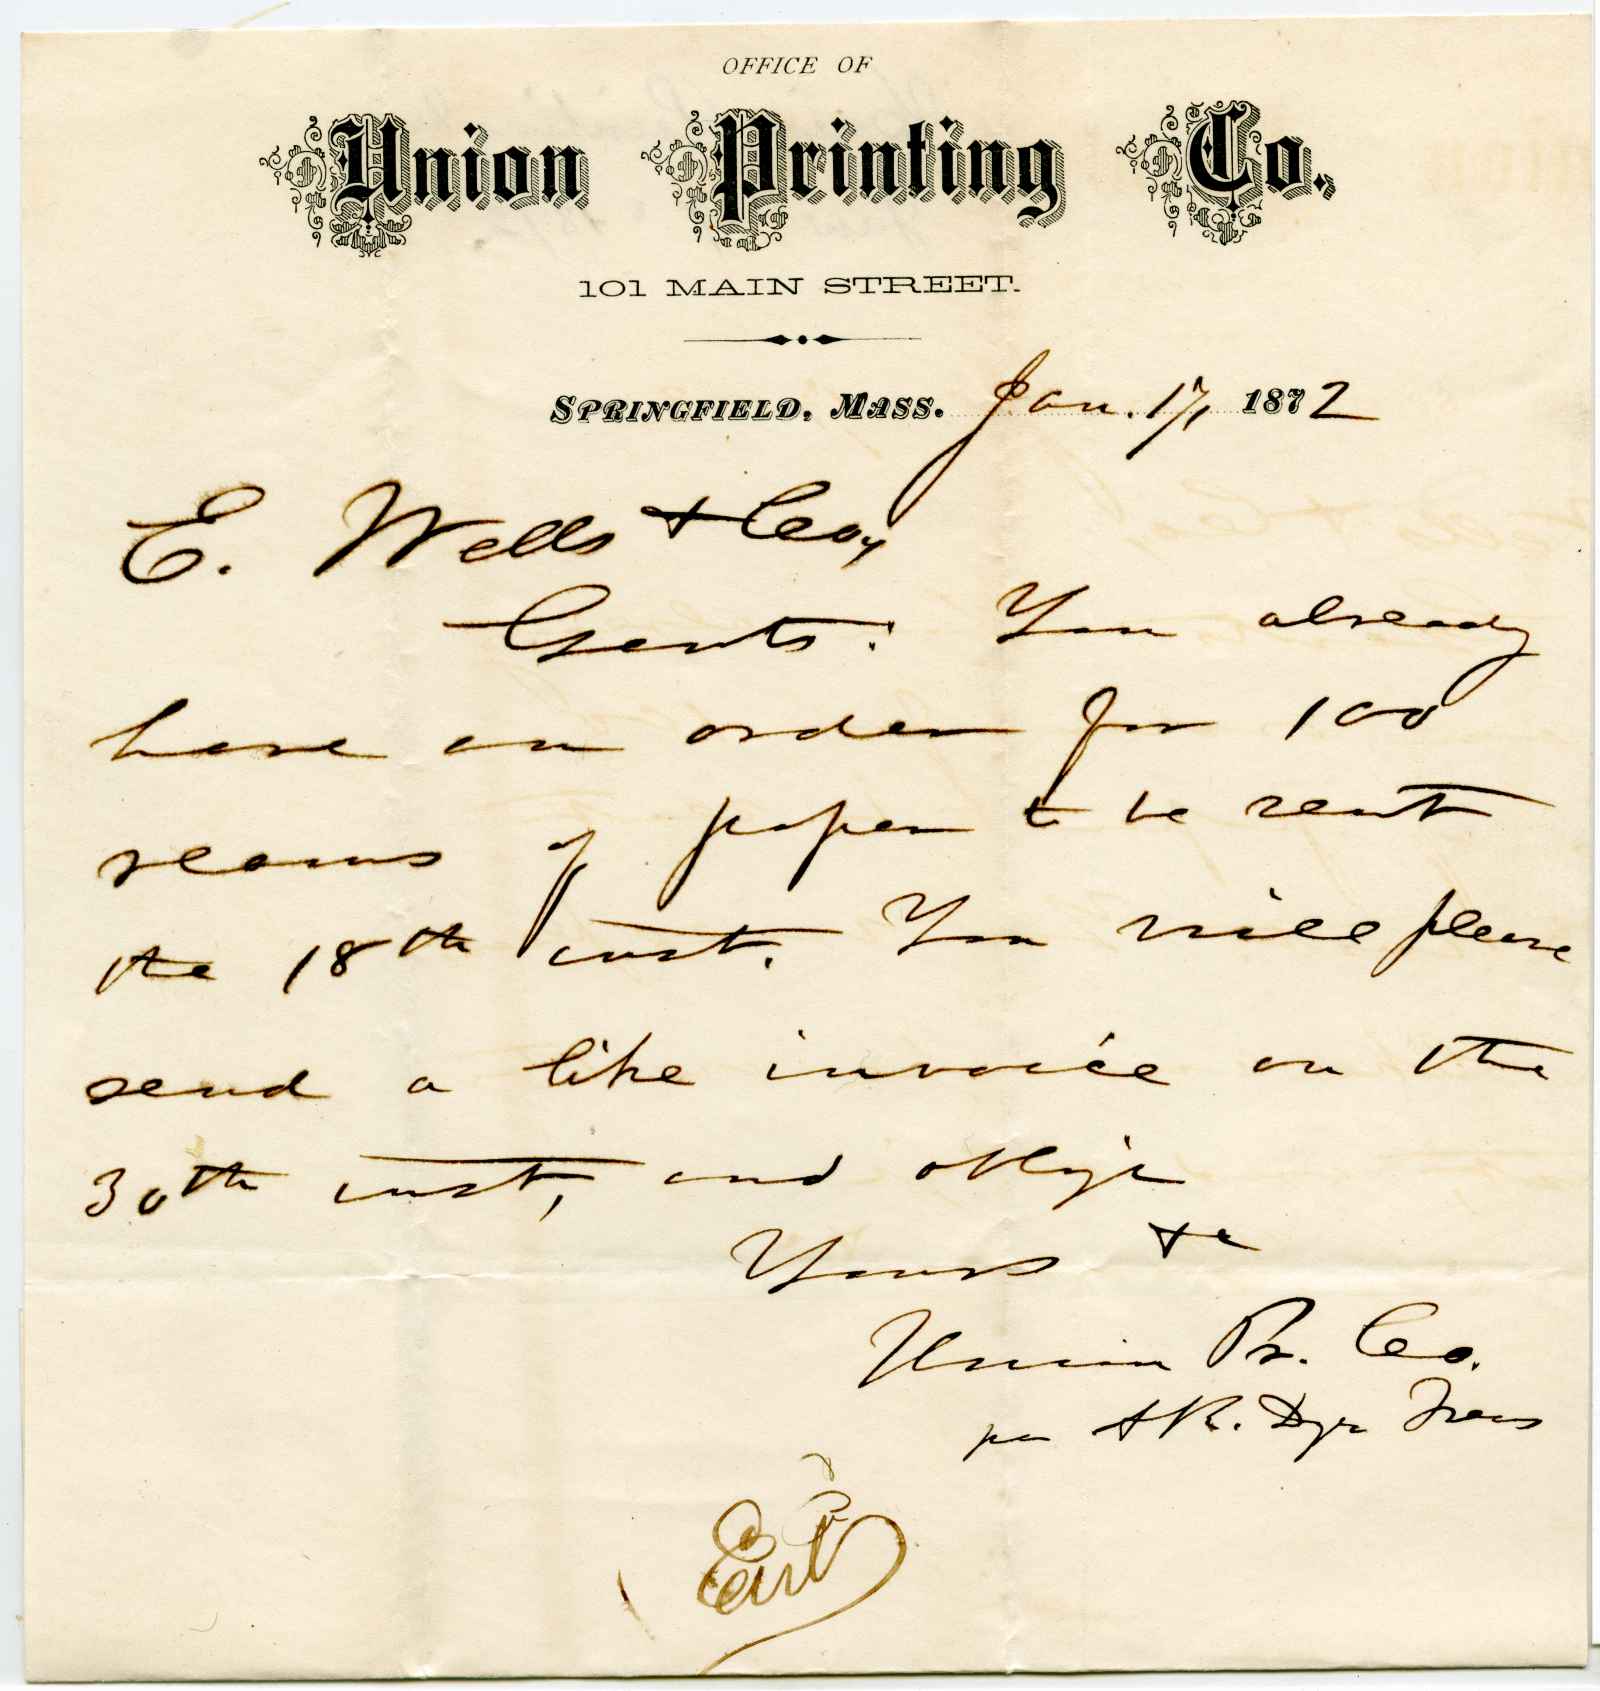 OFFICE OF
Union Printing Co.,
101 MAIN STREET.
SPRINGFIELD, MASS. Jan. 17, 1872
E. Wells & Co.,
Gents: You already
have an order for 100
reams of paper to be sent
the 18th inst. You will please
send a like invoice on the
30th inst, and oblige
Yours &c
Union Pr. Co.
per A R. Dyer Treas
Ent